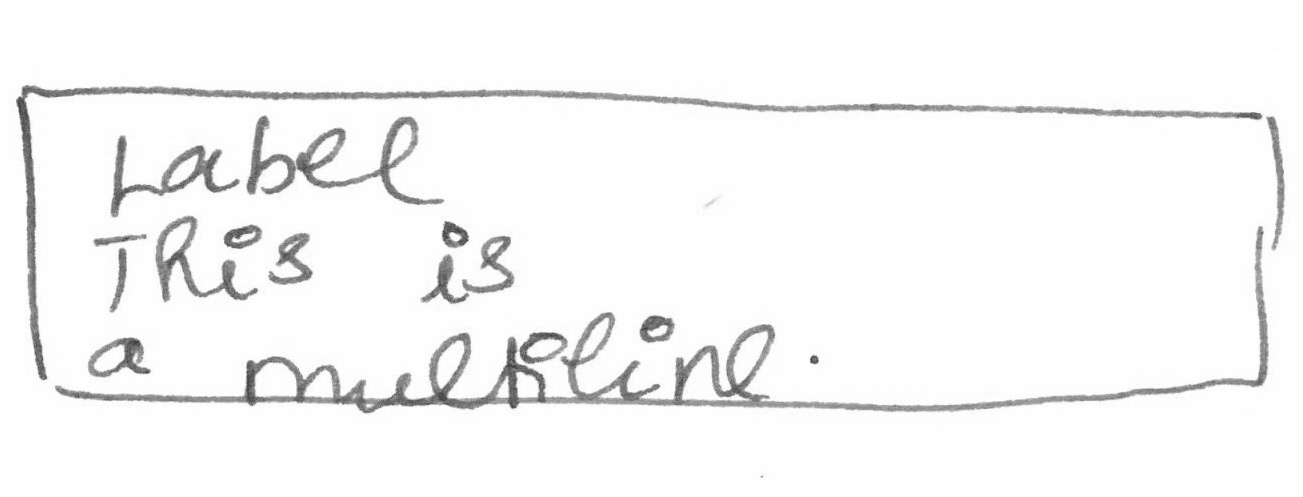 Label
This is
a multiline.